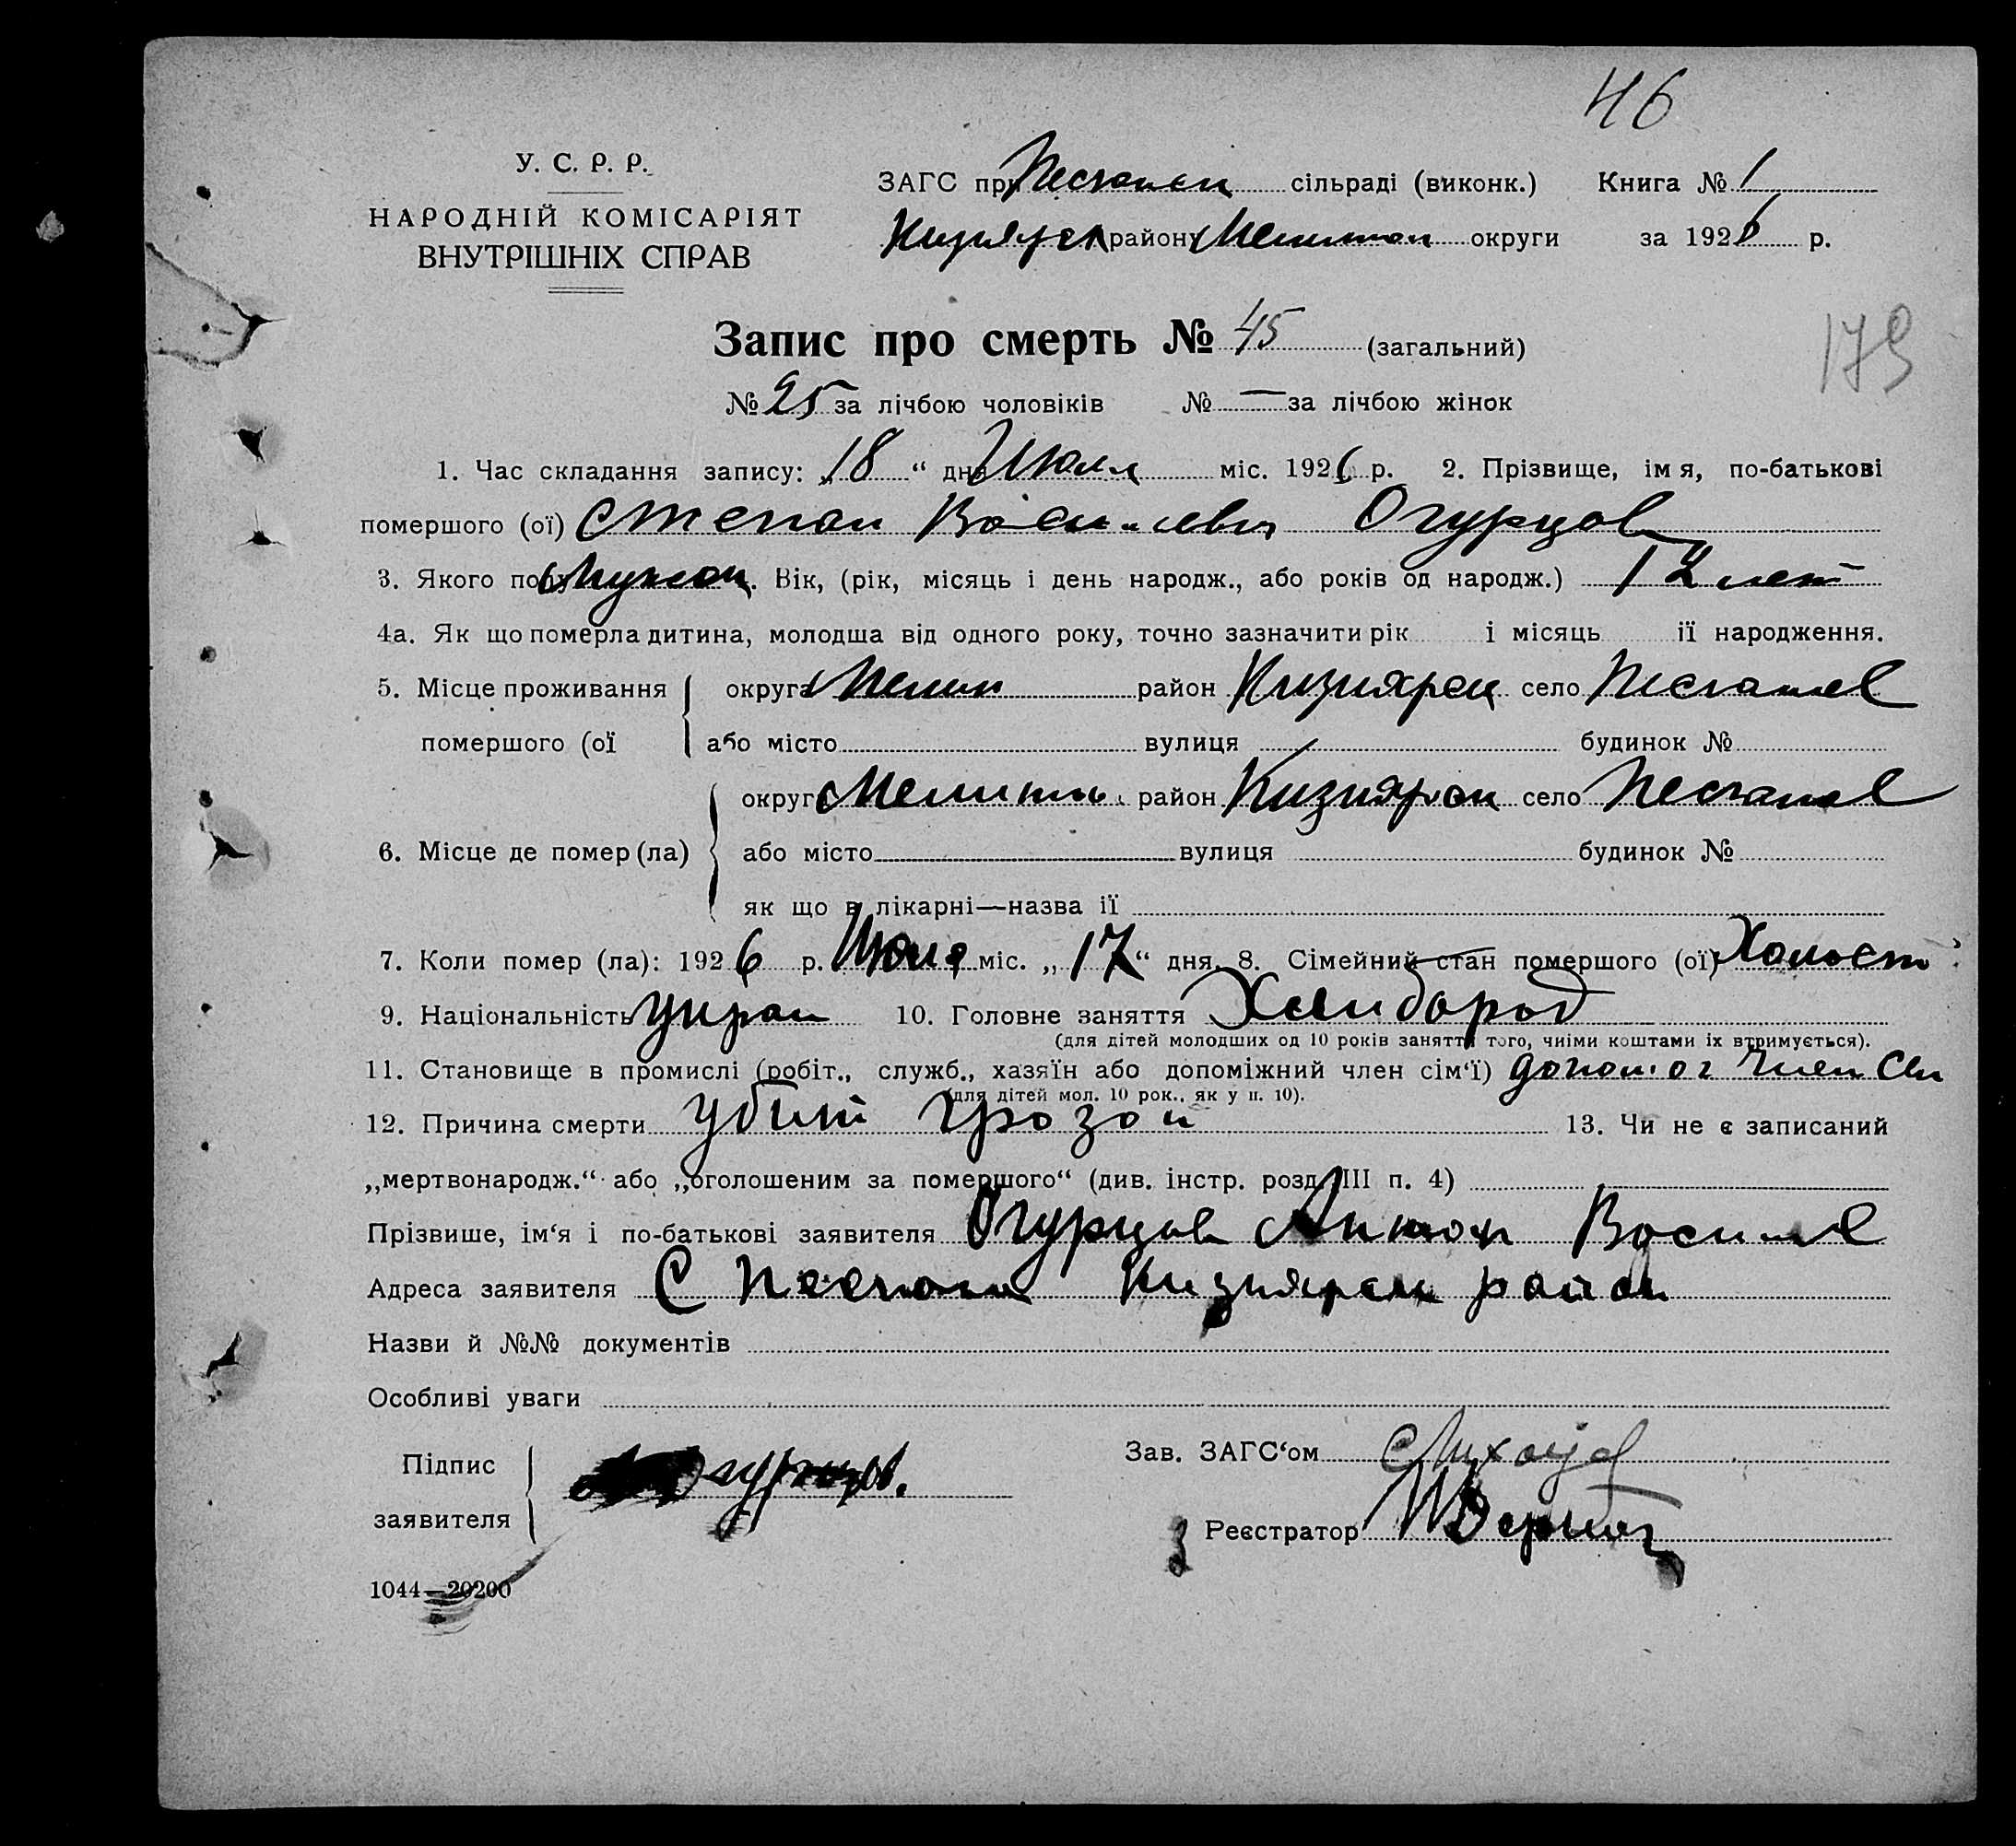 46
У. С. Р. Р.
НАРОДНІЙ КОМІСАРІЯТ
ВНУТРІШНІХ СПРАВ
ЗАГС при сільраді (виконк.) Книга № 1
району округи за 1926 р.
Запис про смерть № 45 (загальний)
179
№ 25 за лічбою чоловіків № — за лічбою жінок
1. Час складання запису: „18“ дня Июля міс. 1926 р. 2. Прізвище, імя, по-батькові
помершого (ої) Степан Огурцов
3. Якого полу Вік, (рік, місяць і день народж., або років од народж.) 12 лет
4а. Як що померла дитина, молодша від одного року, точно зазначити рік і місяць її народження.
5. Місце проживання округа район село
помершого (ої або місто вулиця будинок №
6. Місце де помер (ла) округа район село
або місто вулиця будинок №
як що в лікарні—назва її
7. Коли помер (ла): 1926 р. Июля міс. „17“ дня. 8. Сімейний стан помершого (ої) Холост
9. Національність Украи 10. Головне заняття Хлибороб
(для дітей молодших од 10 років заняття того, чиїми коштами їх втримується).
11. Становище в промислі (робіт., служб., хазяїн або допоміжний член сім‘ї) член
(для дітей мол. 10 рок., як у п. 10).
12. Причина смерти убит грозой 13. Чи не є записаний
„мертвонародж.“ або „оголошеним за помершого“ (див. інстр. розд. III п. 4)
Прізвише, ім‘я і по-батькові заявителя Огурцов Антон
Адреса заявителя С район
Назви й №№ документів
Особливі уваги
Підпис
заявителя
Огурцов.
Зав. ЗАГС‘ом
Реєстратор
1044—20200